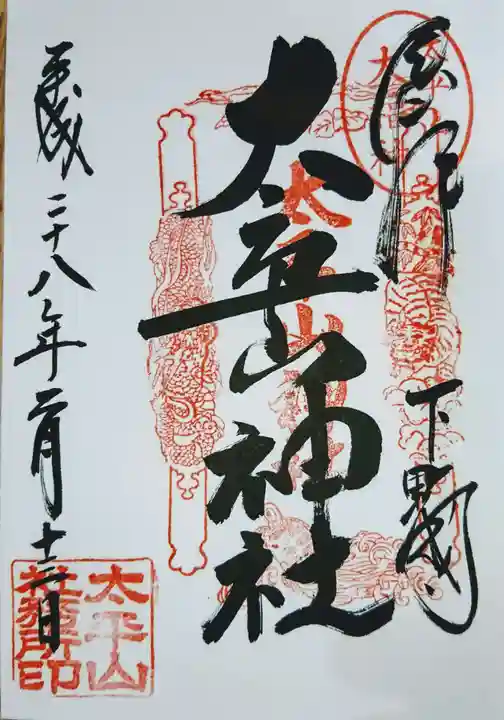 奉拝
下野國
太平山神社
平成二十八年二月十二日
太平山
社務所印